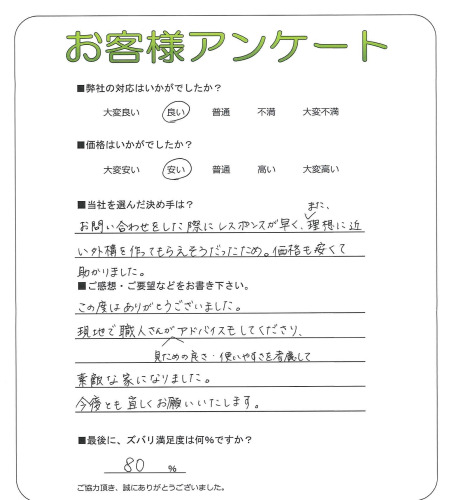 お客様アンケート
■弊社の対応はいかがでしたか？
大変良い 良い 普通 不満 大変不満
■価格はいかがでしたか？
大変安い 安い 普通 高い 大変高い
■当社を選んだ決め手は？
また、
お問い合わせをした際にレスポンスが早く、理想に近
い外構を作ってもらえそうだったため。価格も安くて
助かりました。
■ご感想・ご要望などをお書き下さい。
この度はありがとうございました。
現地で職人さんがアドバイスもしてくださり、
見ための良さ・使いやすさを考慮して
素敵な家になりました。
今後とも宜しくお願いいたします。
■最後に、ズバリ満足度は何％ですか？
80 ％
ご協力頂き、誠にありがとうございました。